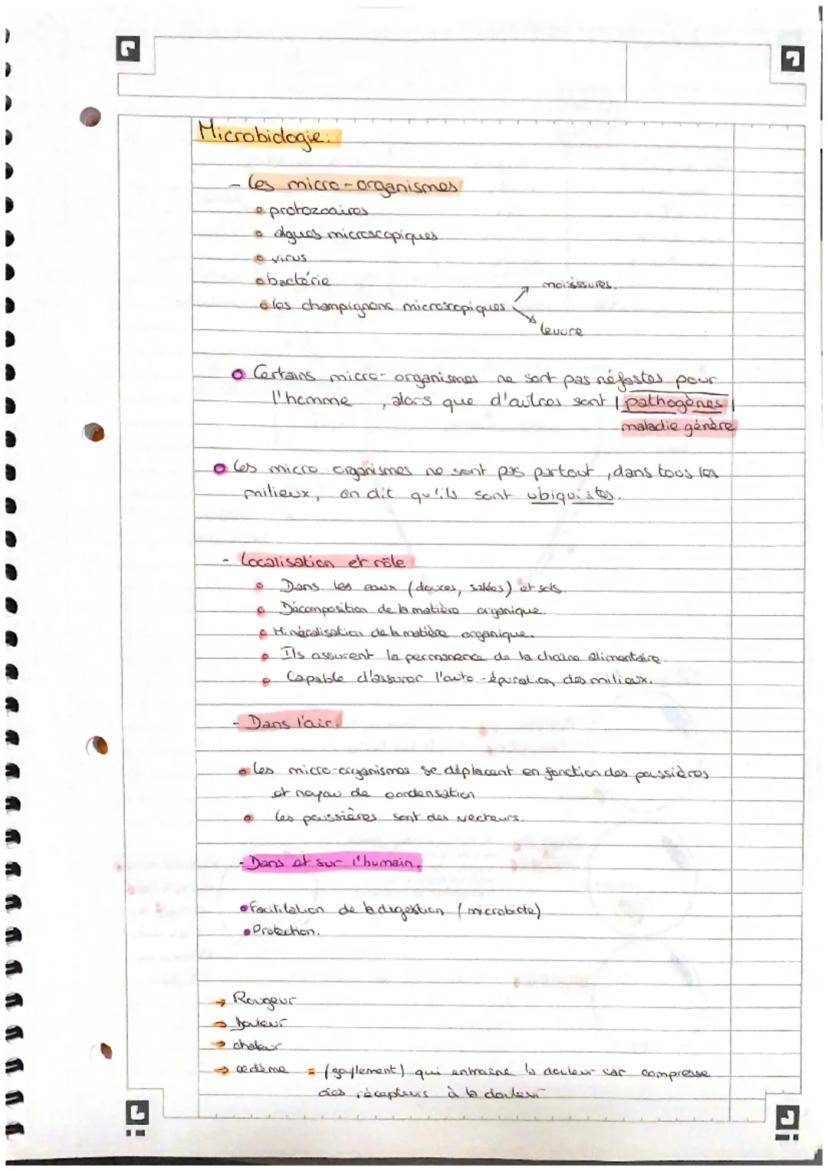 Microbiologie:
- les micro-organismes
protozoaires
algues microscopiques
virus
bactérie
les champignons microscopiques
moisissures.
levure
Certains micro-organismes ne sont pas néfastes pour
l'homme, alors que d'autres sont pathogènes
maladie génère
les micro organismes ne sont pas partout, dans tous les
milieux, on dit qu'ils sont ubiquistes.
- Localisation et rôle
Dans les eaux (douces, salées) et sols.
Décomposition de la matière organique.
Minéralisation de la matière organique.
Ils assurent la permanence de la chaine alimentaire.
Capable d'assurer l'auto-épuration des milieux.
- Dans l'air.
les micro-organismes se déplacent en fonction des poussières
et noyau de condensation
les poussières sont des vecteurs.
- Dans et sur l'humain.
Facilitation de la digestion (microbiote)
Protection.
→ Rougeur
→ Douleur
→ chaleur
→ œdème = (gonflement) qui entraine la douleur car compresse
des récepteurs à la douleur